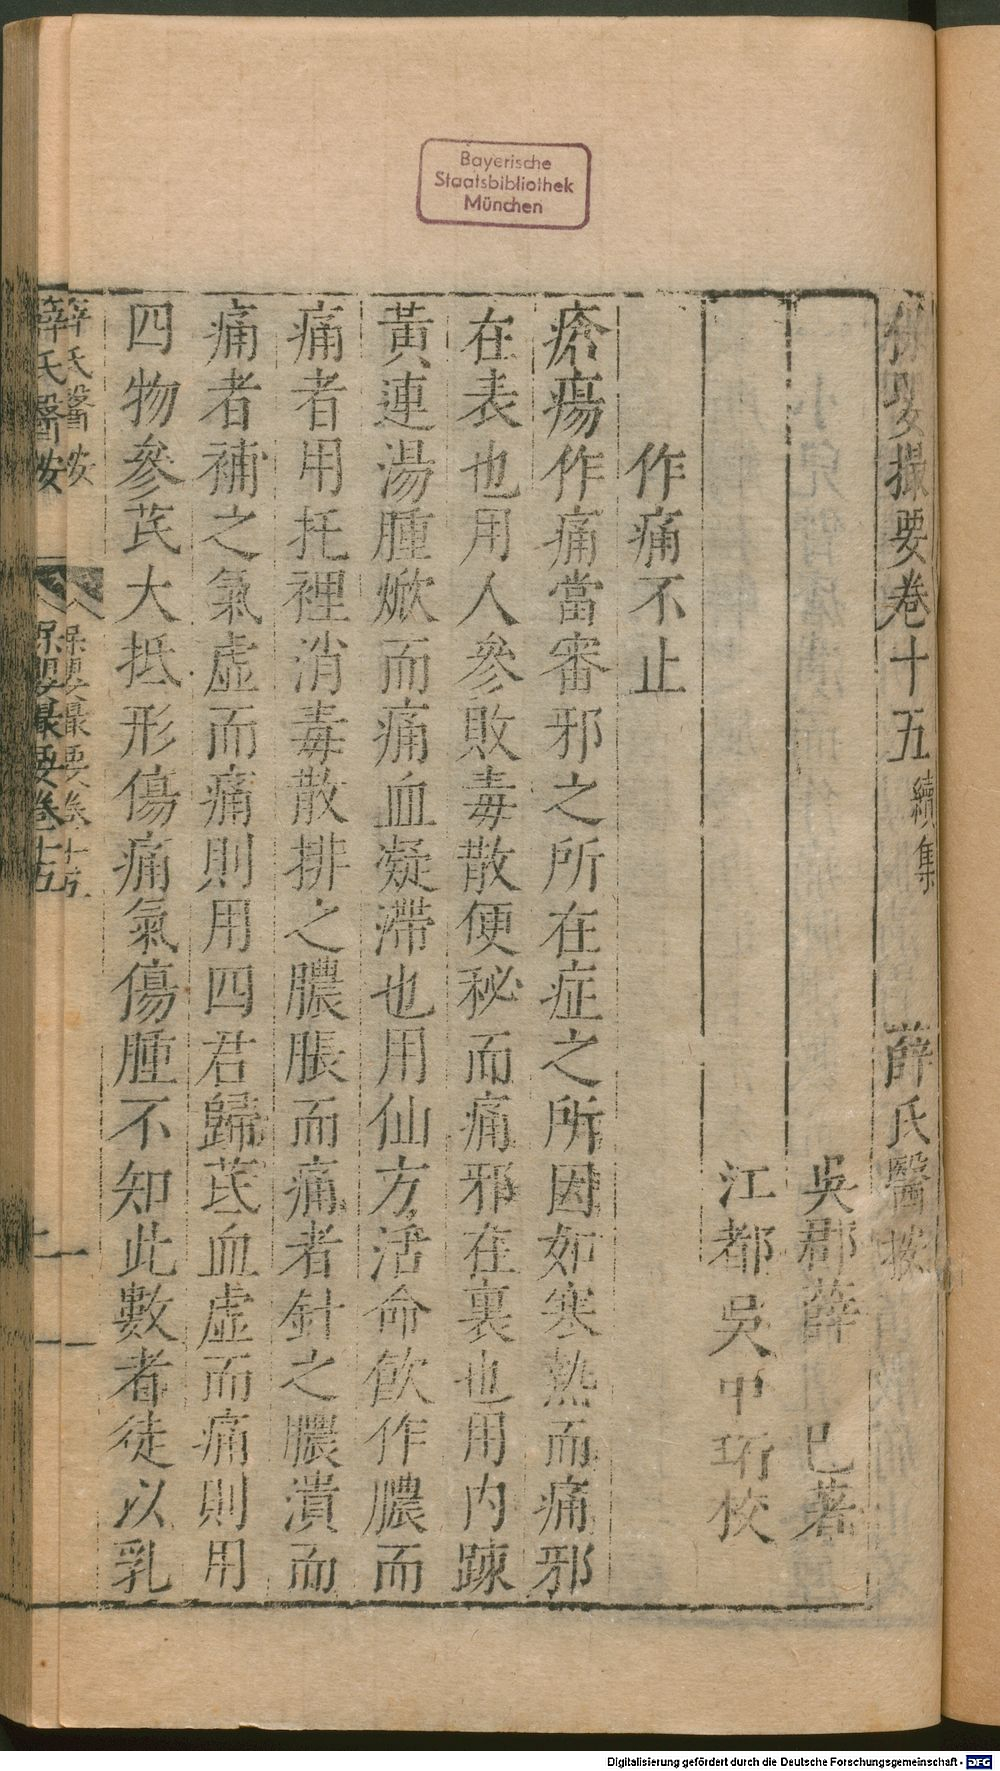 保嬰撮要卷十五 續集 薛氏醫按
吳郡薛 己著
江都吳中珩校
作痛不止
瘡瘍作痛當審邪之所在症之所因如寒熱而痛邪
在表也用人參敗毒散便秘而痛邪在裏也用內踈
黃連湯腫焮而痛血凝滯也用仙方活命飲作膿而
痛者用托裡消毒散排之膿脹而痛者針之膿潰而
痛者補之氣虛而痛則用四君歸芪血虛而痛則用
四物參芪大抵形傷痛氣傷腫不知此數者徒以乳
薛氏醫按 保嬰撮要卷十五 一
Bayerische
Staatsbibliothek
München
Digitalisierung gefördert durch die Deutsche Forschungsgemeinschaft - DFG